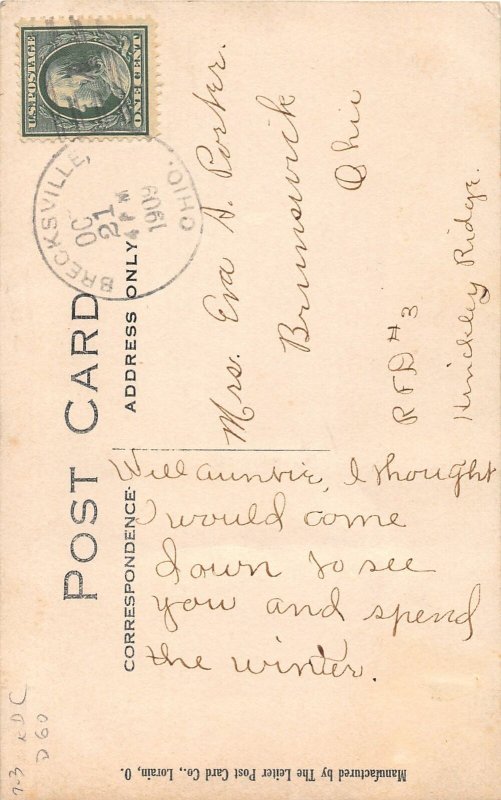 POST CARD
CORRESPONDENCE
ADDRESS ONLY
U.S. POSTAGE
ONE CENT
BRECKSVILLE, OHIO.
OCT
21
4 PM
1909
Mrs. Eva A. Porter.
Brunswick
Ohio
RFD #3
Hinckley Ridge.
Will auntie, I thought
I would come
down to see
you and spend
the winter.
Manufactured by The Leiter Post Card Co., Lorain, O.
D60